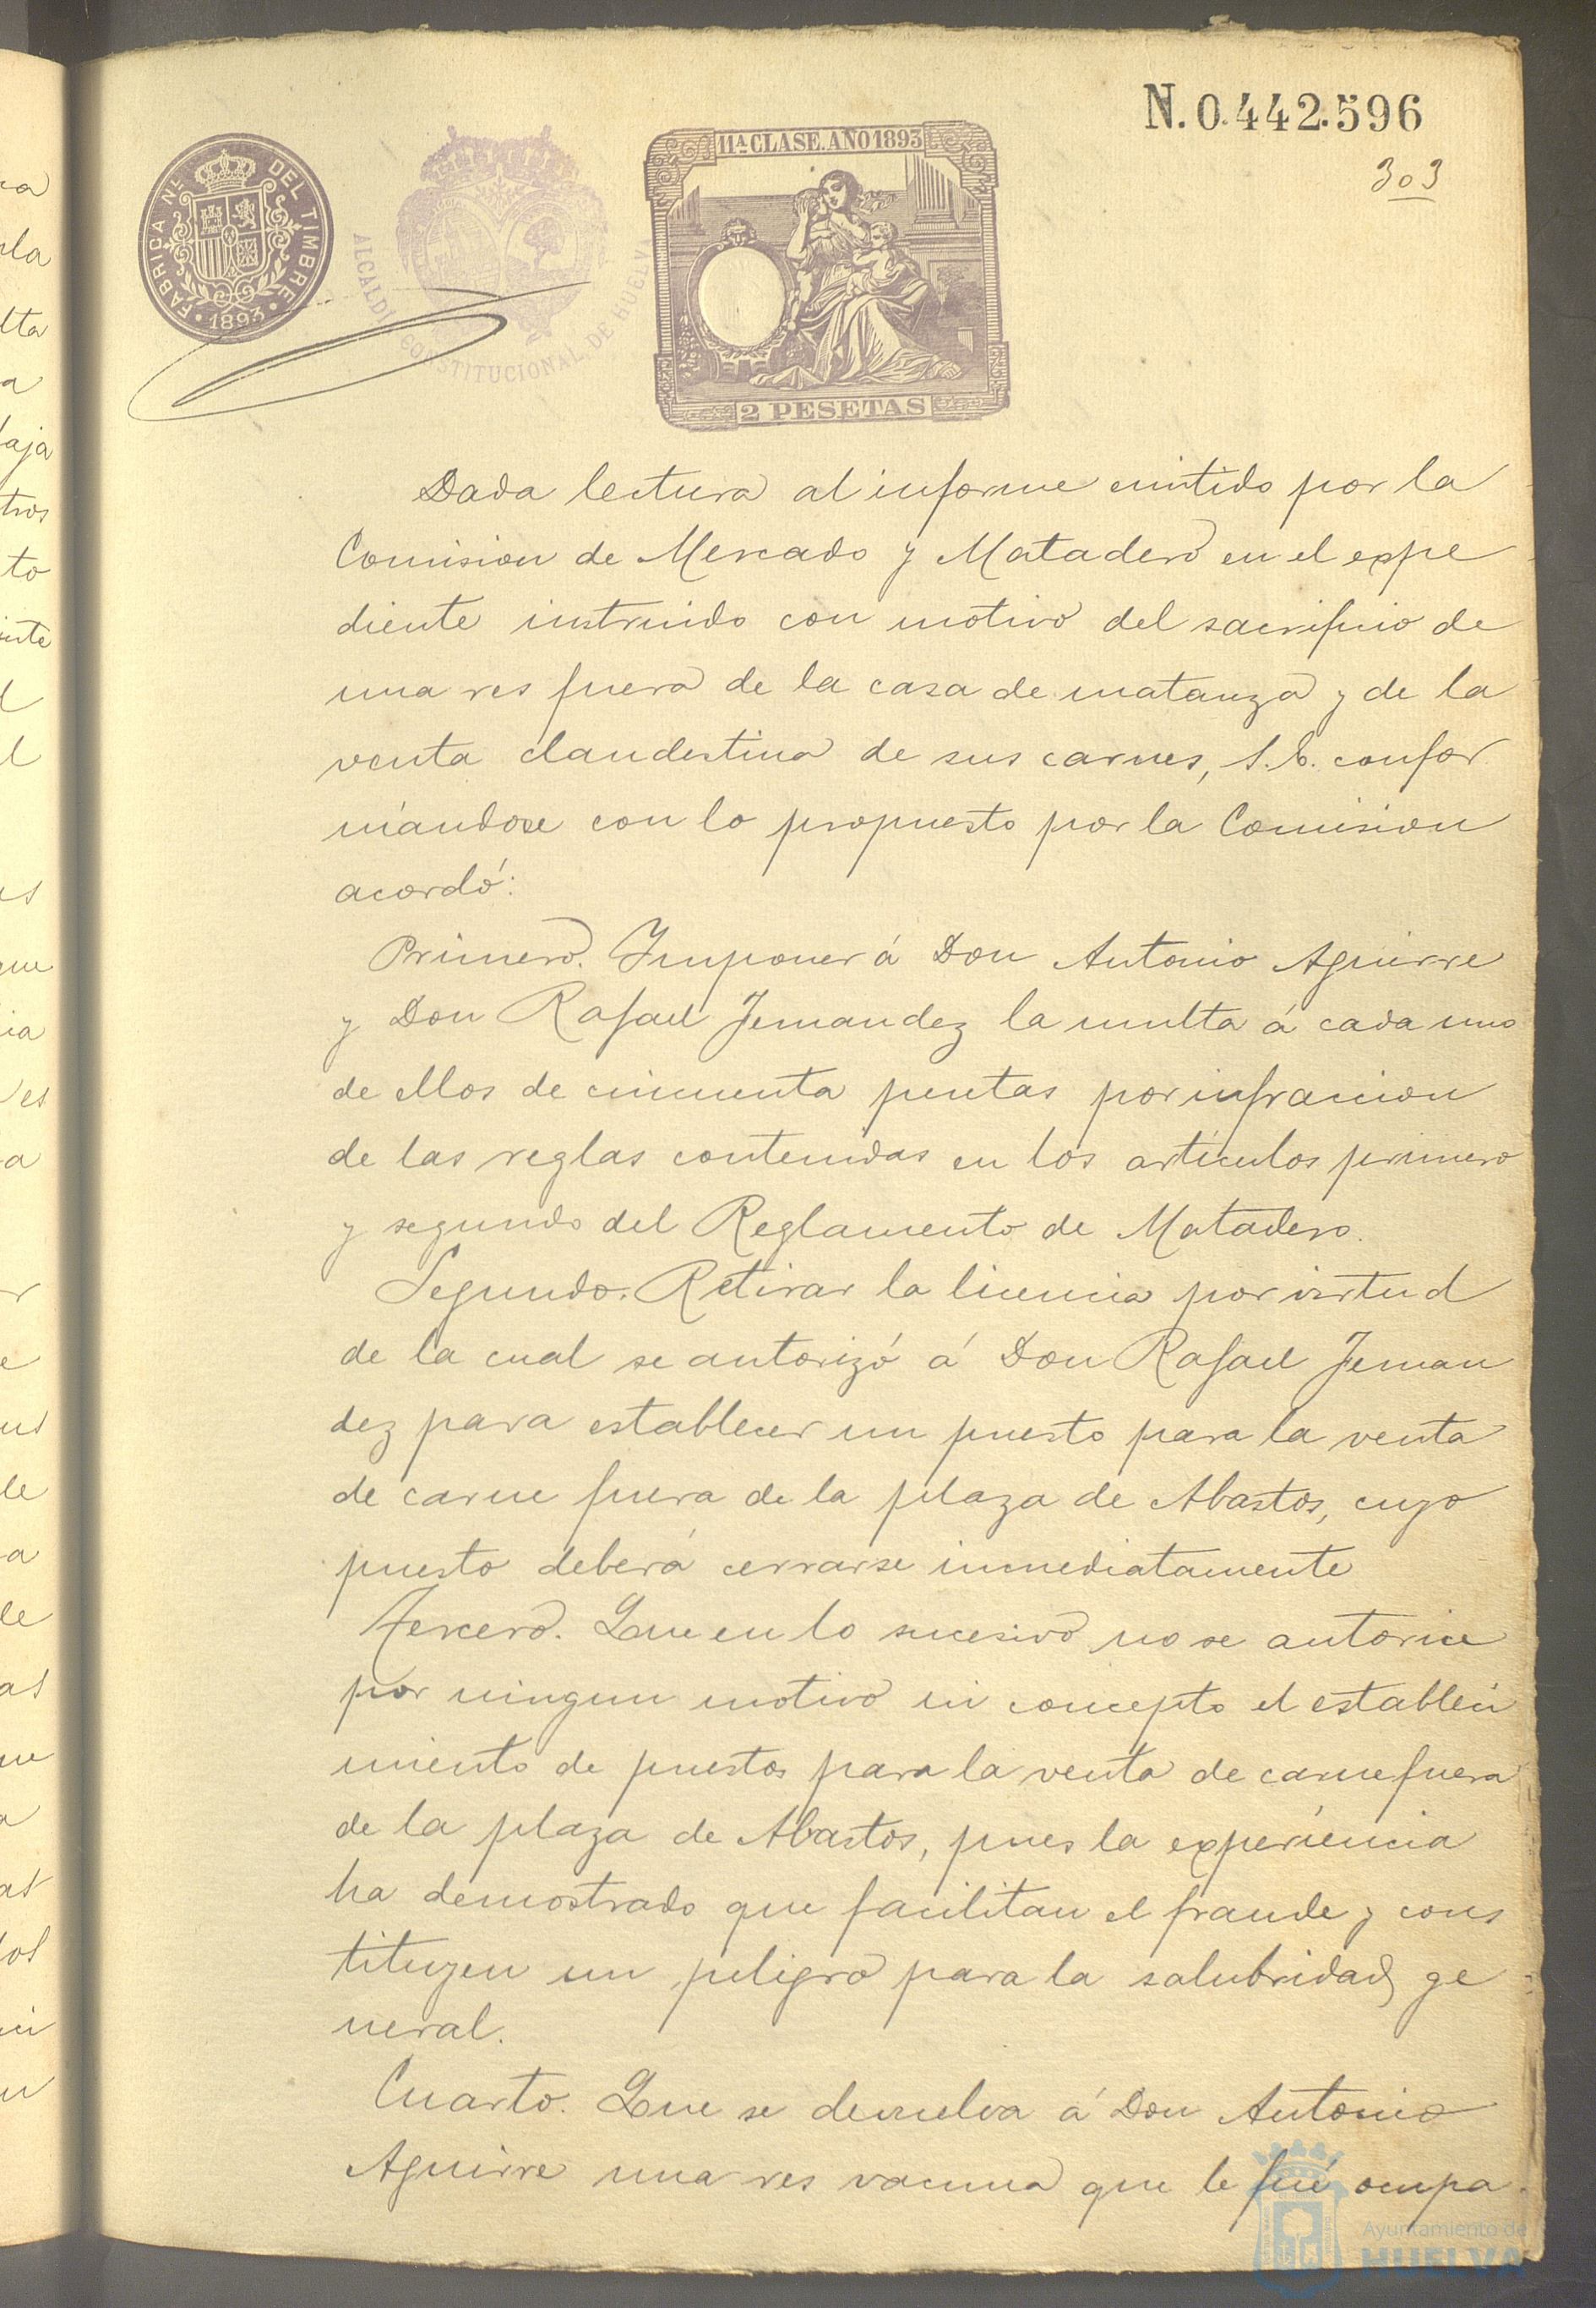 N. 0.442.596
303
FÁBRICA Nᴸ DEL TIMBRE
1893
ALCALDIA CONSTITUCIONAL DE HUELVA
11ª CLASE. AÑO 1893
2 PESETAS
Dada lectura al informe emitido por la
Comision de Mercado y Matadero en el expe
diente instruido con motivo del sacrificio de
una res fuera de la casa de matanza y de la
venta clandestina de sus carnes, S. E. confor
mándose con lo propuesto por la Comision
acordó:
Primero. Imponer á Don Antonio Aguirre
y Don Rafael Fernandez la multa á cada uno
de ellos de cincuenta pesetas por infraccion
de las reglas contenidas en los artículos primero
y segundo del Reglamento de Matadero.
Segundo. Retirar la licencia por virtud
de la cual se autorizó á Don Rafael Fernan
dez para establecer un puesto para la venta
de carne fuera de la plaza de Abastos, cuyo
puesto deberá cerrarse inmediatamente
Tercero. Que en lo sucesivo no se autorice
por ningun motivo ni concepto el estableci
miento de puestos para la venta de carne fuera
de la plaza de Abastos, pues la experiencia
ha demostrado que facilitan el fraude y cons
tituyen un peligro para la salubridad ge
neral.
Cuarto. Que se devuelva á Don Antonio
Aguirre una res vacuna que le fué ocupa
Ayuntamiento de
HUELVA